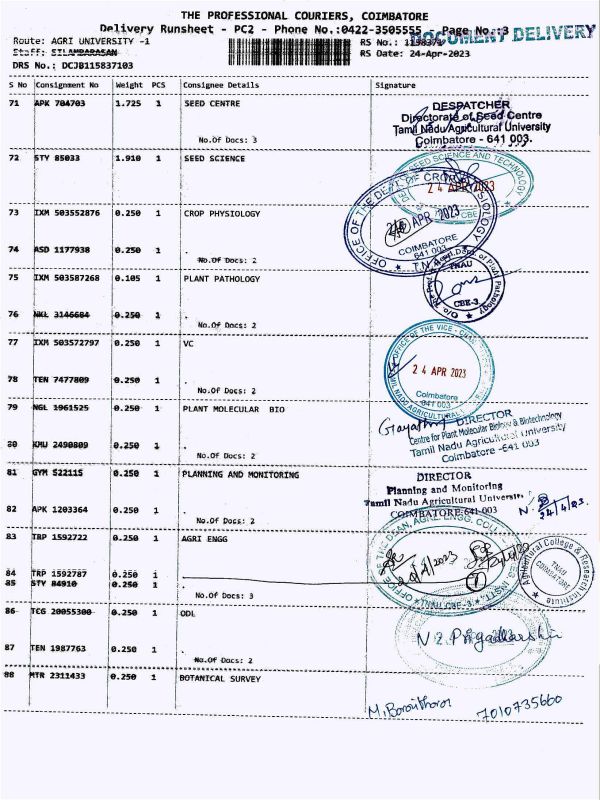 THE PROFESSIONAL COURIERS, COIMBATORE
Delivery Runsheet - PC2 - Phone No.:0422-3505555 Page No.:3
DOCUMENT DELIVERY
Route: AGRI UNIVERSITY -1
RS No.:
Staff: SILAMBARASAN
RS Date: 24-Apr-2023
DRS No.: DCJB115837103
S No Consignment No Weight PCS Consignee Details Signature
71 APK 704703 1.725 1 SEED CENTRE
DESPATCHER
Directorate of Seed Centre
Tamil Nadu Agricultural University
Coimbatore - 641 003.
No.Of Docs: 3
72 STY 85033 1.910 1 SEED SCIENCE
SEED SCIENCE AND TECHNOLOGY
24 APR 2023
73 IXM 503552876 0.250 1 CROP PHYSIOLOGY
OFFICE OF THE DEPT. OF CROP PHYSIOLOGY
APR 2023
COIMBATORE
641 003
74 ASD 1177938 0.250 1 .
No.Of Docs: 2
75 IXM 503587268 0.105 1 PLANT PATHOLOGY
Plant Pathology
TNAU
CBE-3
76 NKL 3146684 0.250 1 .
No.Of Docs: 2
77 IXM 503572797 0.250 1 VC
OFFICE OF THE VICE -
24 APR 2023
Coimbatore
641 003
TAMIL NADU AGRICULTURAL
78 TEN 7477809 0.250 1 .
No.Of Docs: 2
79 NGL 1961525 0.250 1 PLANT MOLECULAR BIO
Gayathri DIRECTOR
Centre for Plant Molecular Biology & Biotechnology
Tamil Nadu Agricultural University
Coimbatore -641 003
80 KMU 2490809 0.250 1 .
81 GYM 52211S 0.250 1 PLANNING AND MONITORING
DIRECTOR
Planning and Monitoring
Tamil Nadu Agricultural University
COIMBATORE-641 003
24/4/23.
82 APK 1203364 0.250 1 .
No.Of Docs: 2
83 TRP 1592722 0.250 1 AGRI ENGG
OFFICE OF THE DEAN, AGRL. ENGG. COLL
TNAU, CBE-3
Agricultural College & Research Institute
TNAU
COIMBATORE
84 TRP 1592787 0.250 1
85 STY 84910 0.250 1 .
No.Of Docs: 3
86 TCG 20055300 0.250 1 ODL
87 TEN 1987763 0.250 1 .
No.Of Docs: 2
88 MTR 2311433 0.250 1 BOTANICAL SURVEY
7010735660